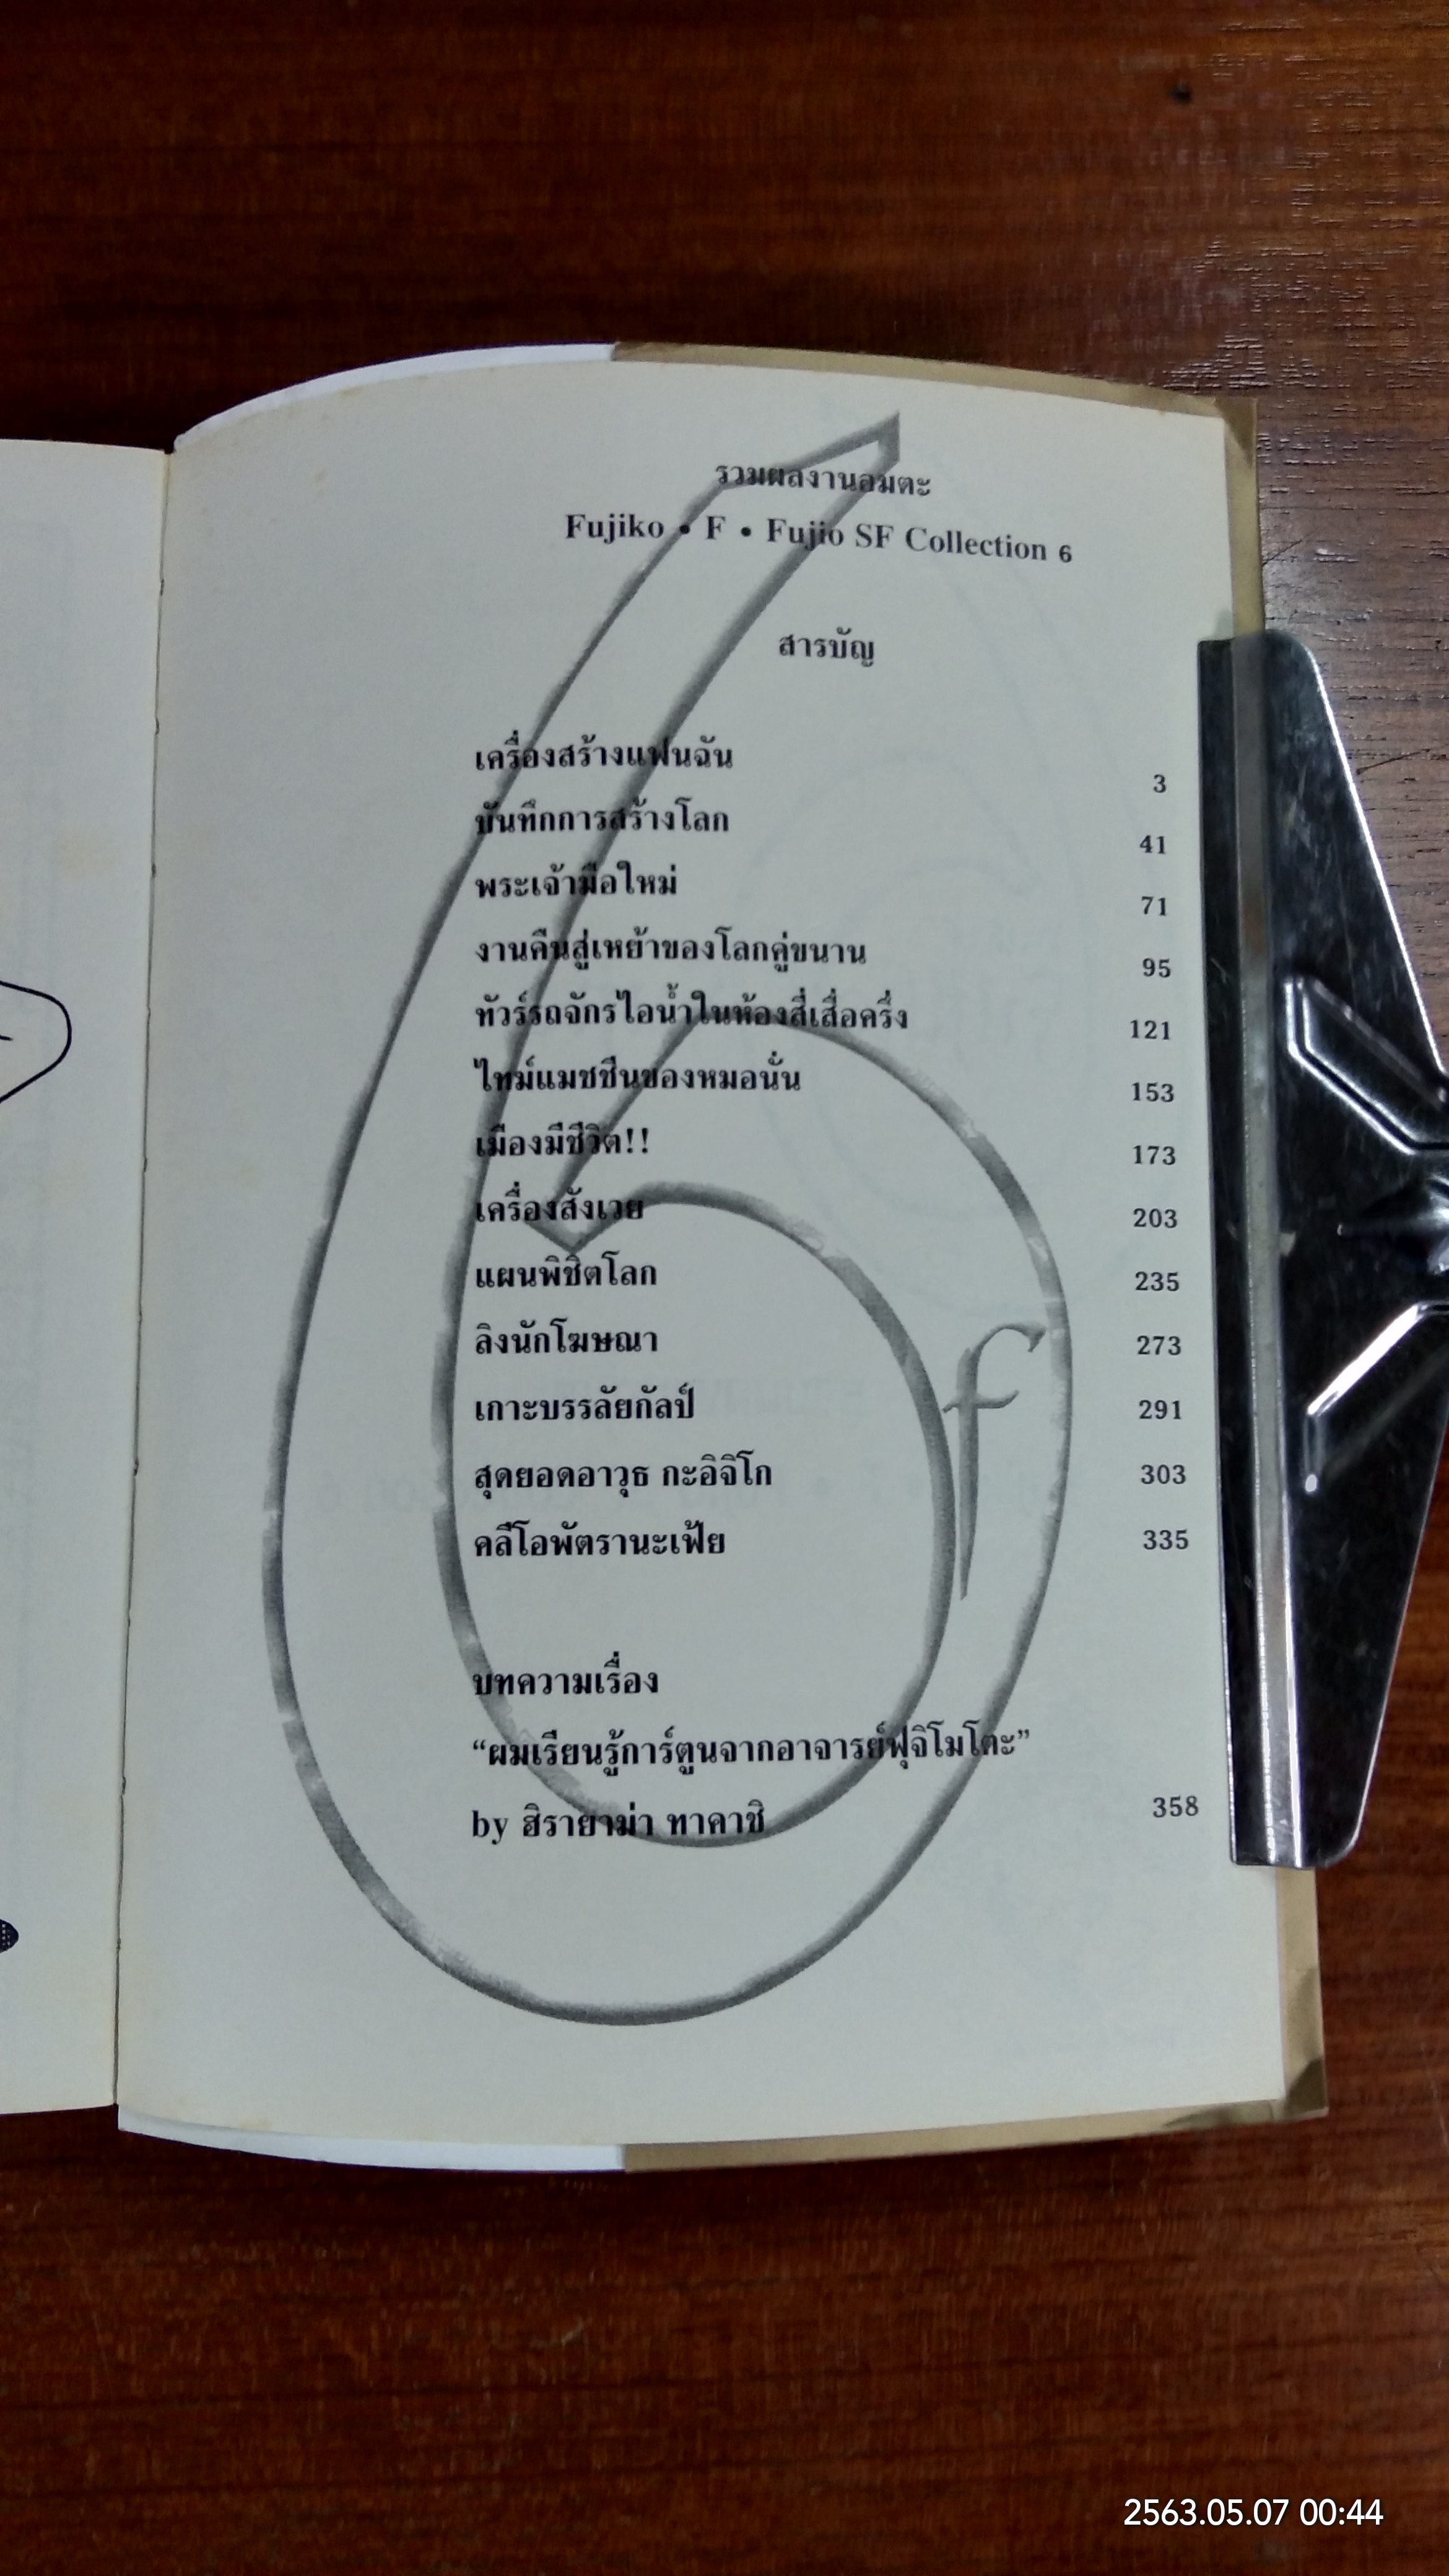 รวมผลงานอมตะ
Fujiko • F • Fujio SF Collection 6
สารบัญ
เครื่องสร้างแฟนฉัน 3
บันทึกการสร้างโลก 41
พระเจ้ามือใหม่ 71
งานคืนสู่เหย้าของโลกคู่ขนาน 95
ทัวร์รถจักรไอน้ำในห้องสี่เสื่อครึ่ง 121
ไทม์แมชชีนของหมอนั่น 153
เมืองมีชีวิต!! 173
เครื่องสังเวย 203
แผนพิชิตโลก 235
ลิงนักโฆษณา 273
เกาะบรรลัยกัลป์ 291
สุดยอดอาวุธ กะอิจิโก 303
คลีโอพัตรานะเฟ้ย 335
บทความเรื่อง
“ผมเรียนรู้การ์ตูนจากอาจารย์ฟุจิโมโตะ”
by ฮิรายาม่า ทาคาชิ 358
f
2563.05.07 00:44